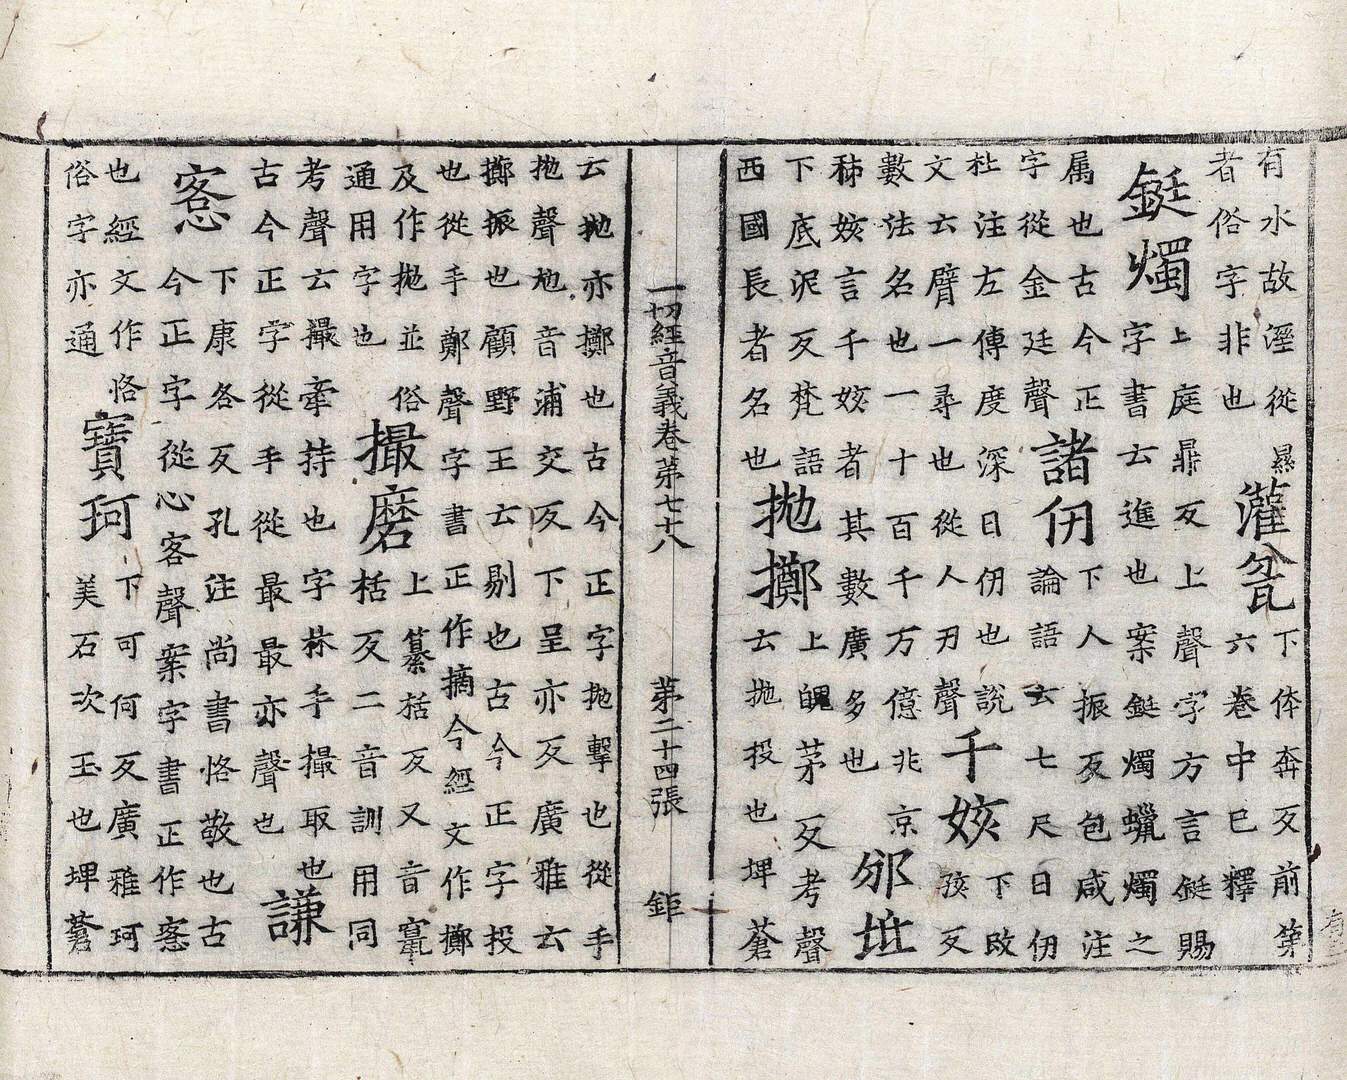 有水故溼從㬎灌瓫下体奔反前第
者俗字非也六卷中已釋
鋌燭上庭鼎反上聲字方言鋌賜
字書云進也案鋌燭蠟燭之
属也古今正下人振反包咸注
字從金廷聲諸仞論語云七尺曰仞
杜注左傳度深曰仞也說千姟下改
文云臂一尋也從人刃聲孩反
數法名也一十百千万億兆京
秭姟言千姟者其數廣多也邠坻
下底泥反梵語拋擲上䫉茅反考聲
西國長者名也云拋投也埤蒼
一切經音義卷第七十八 第二十四張 鉅
云拋亦擲也古今正字拋擊也從手
拋聲尥音浦交反下呈亦反廣雅云
擲振也顧野王云剔也古今正字投
也從手鄭聲字書正作擿今經文作擲
及作拋並俗撮磨上纂括反又音竃
通用字也括反二音訓用同
考聲云撮牽持也字林手撮取也謙
古今正字從手從最最亦聲也
愙下康各反孔注尚書恪敬也古
今正字從心客聲案字書正作愙
也經文作恪寶珂下可何反廣雅珂
俗字亦通美石次玉也埤蒼